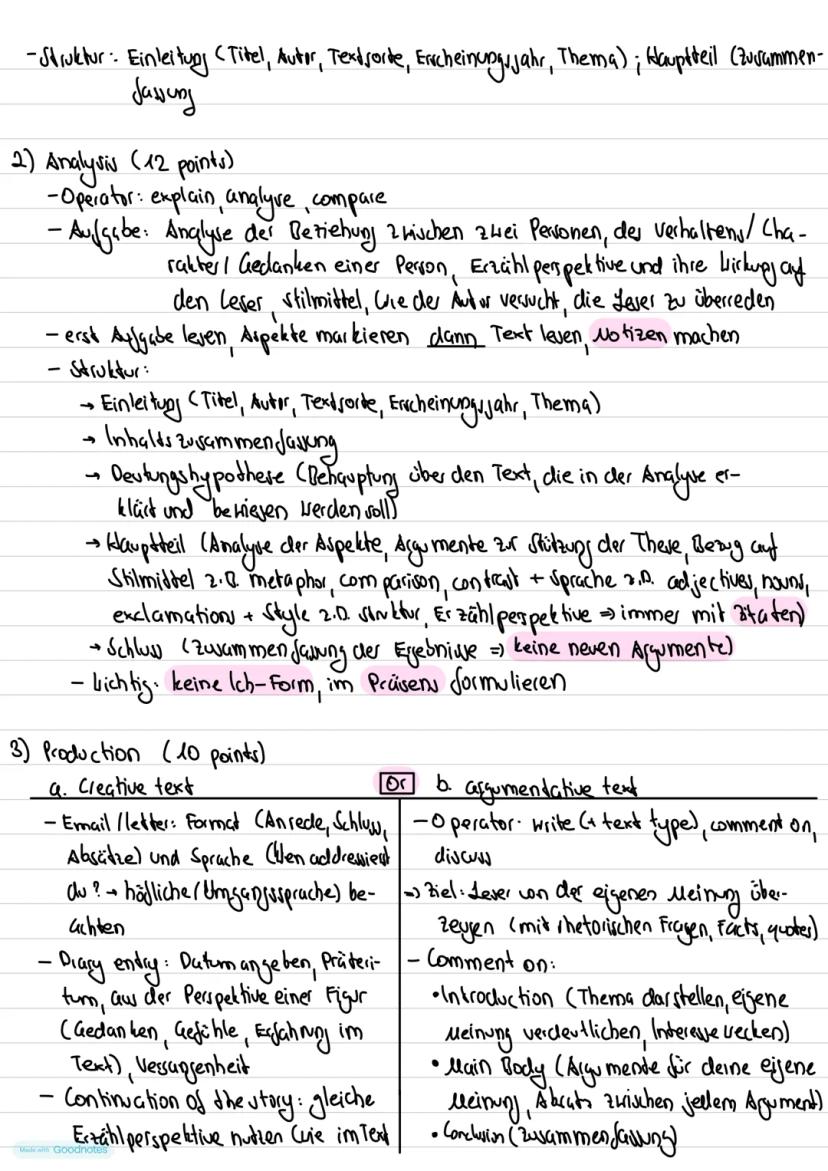 - Struktur: Einleitung (Titel, Autor, Textsorte, Erscheinungsjahr, Thema); Hauptteil (Zusammen-
fassung
2) Analysis (12 points)
- Operator: explain, analyse, compare
- Aufgabe: Analyse der Beziehung zwischen zwei Personen, des Verhaltens/ Cha-
rakters/ Gedanken einer Person, Erzählperspektive und ihre Wirkung auf
den Leser, Stilmittel, wie der Autor versucht, die Leser zu überreden
- erst Aufgabe lesen, Aspekte markieren dann Text lesen, Notizen machen
- Struktur:
→ Einleitung (Titel, Autor, Textsorte, Erscheinungsjahr, Thema)
→ Inhaltszusammenfassung
→ Deutungshypothese (Behauptung über den Text, die in der Analyse er-
klärt und bewiesen werden soll)
→ Hauptteil (Analyse der Aspekte, Argumente zur Stützung der These, Bezug auf
Stilmittel z.B. metaphor, comparison, contrast + Sprache z.B. adjectives, nouns,
exclamations + Style z.B. Struktur, Erzählperspektive ⇒ immer mit Zitaten)
→ Schluss (Zusammenfassung der Ergebnisse ⇒ keine neuen Argumente)
- Wichtig: keine Ich-Form, im Präsens formulieren
3) Production (10 points)
a. Creative text Or b. argumentative text
- Email/letter: Format (Anrede, Schluss,
Absätze) und Sprache (Wen addressierst
du? → höfliche/Umgangssprache) be-
achten
- Diary entry: Datum angeben, Präteri-
tum, aus der Perspektive einer Figur
(Gedanken, Gefühle, Erfahrung im
Text), Vergangenheit
- Continuation of the story: gleiche
Erzählperspektive nutzen wie im Text
- Operator: write (+ text type), comment on,
discuss
⇒ Ziel: Leser von der eigenen Meinung über-
zeugen (mit rhetorischen Fragen, Facts, quotes)
- Comment on:
• Introduction (Thema darstellen, eigene
Meinung verdeutlichen, Interesse wecken)
• Main Body (Argumente für deine eigene
Meinung, Absatz zwischen jedem Argument)
• Conclusion (Zusammenfassung)
Made with Goodnotes